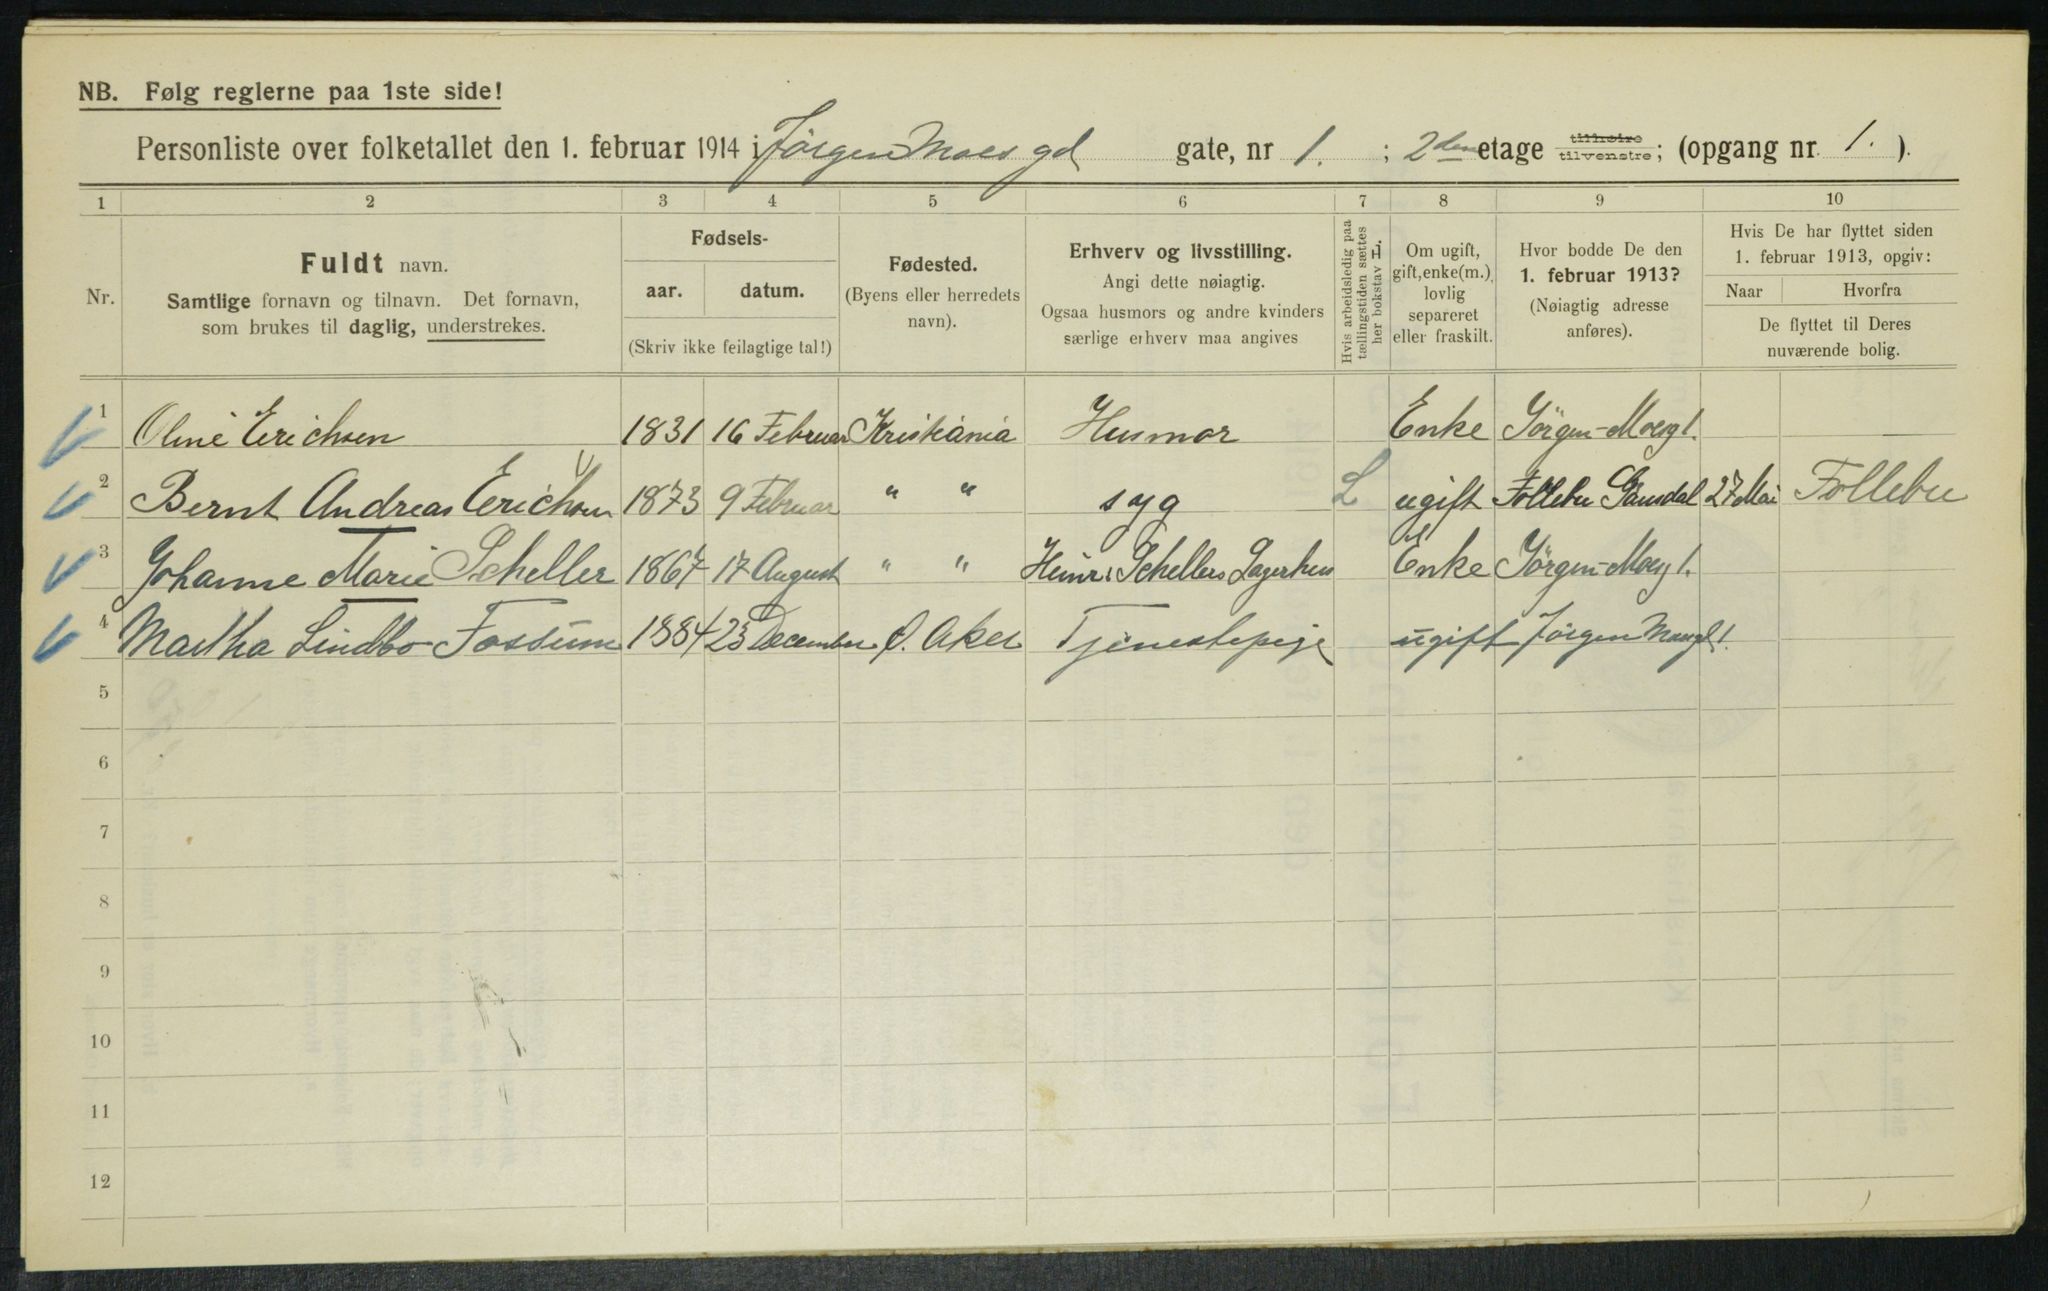 NB. Følg reglerne paa 1ste side!
Personliste over folketallet den 1. februar 1914 i Jörgen Moes gd gate, nr 1. ; 2den etage tilhøire tilvenstre; (opgang nr. 1. ).
1 2 3 4 5 6 7 8 9 10
Nr.
Fuldt navn.
Samtlige fornavn og tilnavn. Det fornavn,
som brukes til daglig, understrekes.
Fødsels-
aar. datum.
(Skriv ikke feilagtige tal!)
Fødested.
(Byens eller herredets
navn).
Erhverv og livsstilling.
Angi dette nøiagtig.
Ogsaa husmors og andre kvinders
særlige erhverv maa angives
Hvis arbeidsledig paa
tællingstiden sættes
her bokstav L.
Om ugift,
gift, enke(m.),
lovlig
separeret
eller fraskilt.
Hvor bodde De den
1. februar 1913?
(Nøiagtig adresse
anføres).
Hvis De har flyttet siden
1. februar 1913, opgiv:
Naar Hvorfra
De flyttet til Deres
nuværende bolig.
1 Oline Erichsen 1831 16 Februar Kristiania Husmor Enke Jörgen-Moesg 1.
2 Bernt Andreas Erichsen 1873 9 Februar " " syg L ugift Follebu Gausdal 27 Mai Follebu
3 Johanne Marie Scheller 1867 17 August " " Heinr. Schellers Lagerhus Enke Jörgen-Moesg 1.
4 Martha Lindbo Fossum 1884 23 December Ø. Aker Tjenestepige ugift Jörgen Moesgt 1.
5
6
7
8
9
10
11
12